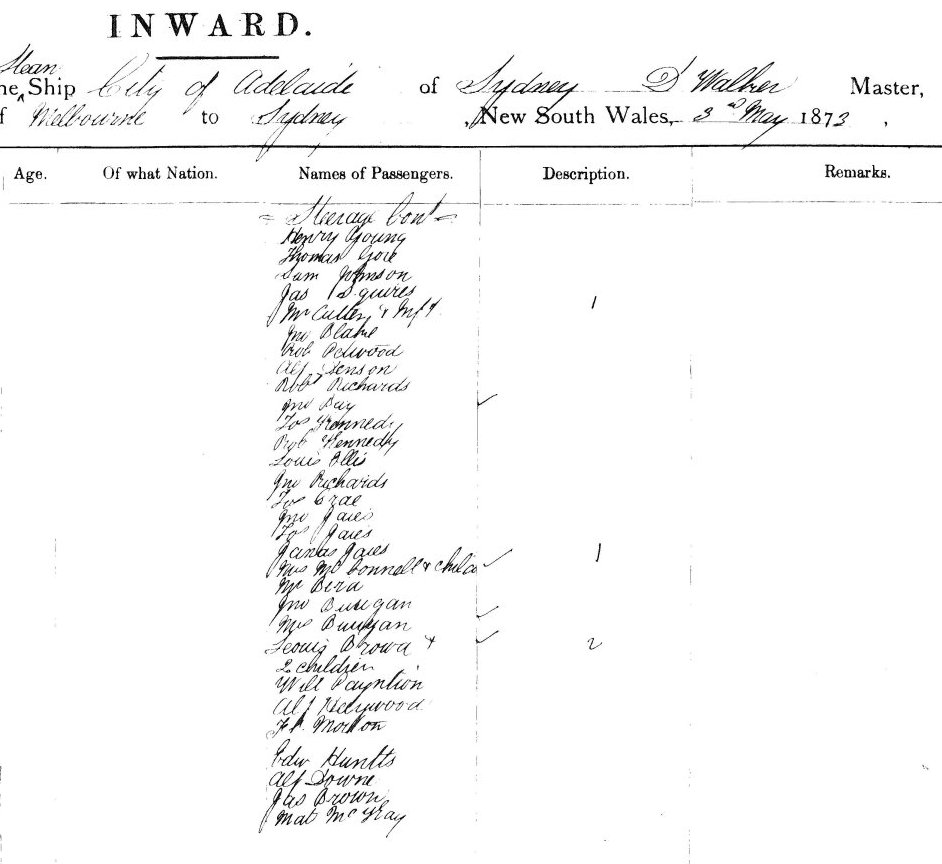 INWARD.
Steam
Ship City of Adelaide of Sydney D Walker Master,
Melbourne to Sydney , New South Wales, 3rd May 1873 ,
Age. Of what Nation. Names of Passengers. Description. Remarks.
= Steerage Cont =
Henry Young
Thomas Gore
Sam Johnson
Jas Squires
Mr & Inft 1
Jno Blake
Rob
Alf Jenson
Robt Richards
Jno Day ✓
Jos Kennedy
Rob Kennedy
Louis Ellis
Jno Richards
Jos
Jno
Jos
Mrs McConnell & child ✓ 1
Mr Bird
Jno
Mrs ✓
Brown & ✓ 2
2 children
Will
Alf Haywood
Fk Morton
Edw
Alf Downe
Jas Brown
Mat